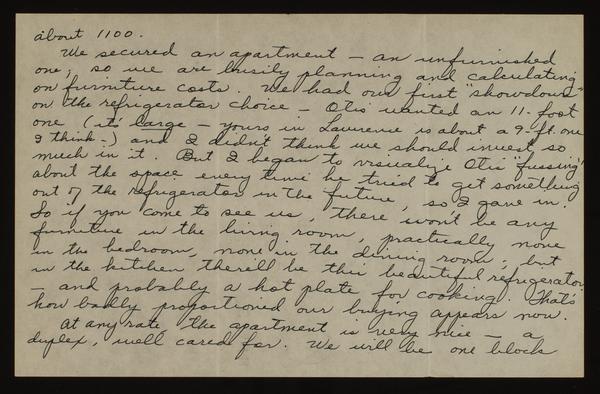 about 1100.
We secured an apartment – an unfurnished
one, so we are busily planning and calculating
on furniture costs. We had our first "showdown"
on the refrigerator choice – Otis wanted an 11-foot
one (it's large – yours in Lawrence is about a 9-ft. one
I think –) and I didn't think we should invest so
much in it. But I began to visualize Otis "fussing"
about the space every time he tried to get something
out of the refrigerator in the future, so I gave in.
So if you come to see us, there won't be any
furniture in the living room, practically none
in the bedroom, none in the dining room, but
in the kitchen there'll be this beautiful refrigerator
– and probably a hot plate for cooking. That's
how badly proportioned our buying appears now.
At any rate, the apartment is very nice – a
duplex, well cared for. We will be one block